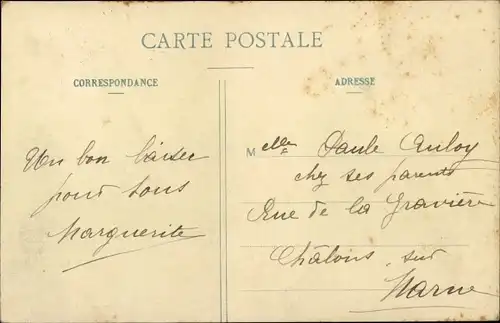 CARTE POSTALE
CORRESPONDANCE
ADRESSE
Un bon baiser
pour tous
Marguerite
Melle Paule Auloy
chez ses parents
Rue de la Gravière
Châlons sur
Marne